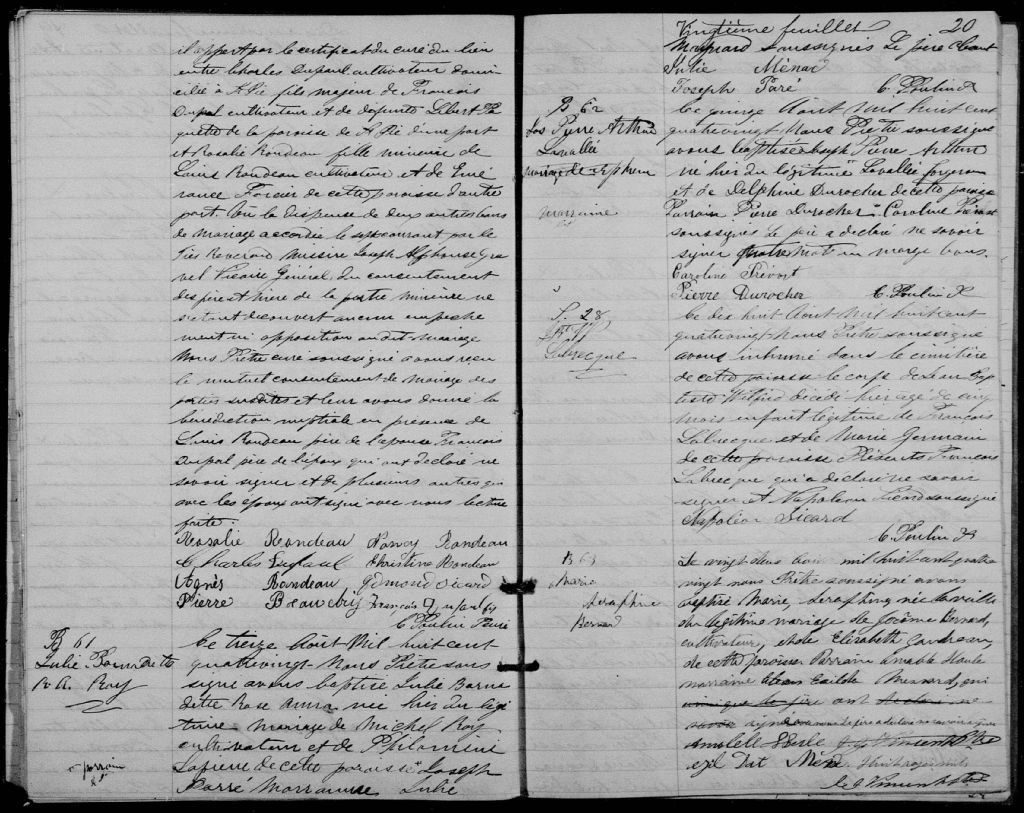 il appert par le certificat du curé du lieu
entre Charles Dupaul cultivateur domi
cilié à fils majeur de François
Dupal cultivateur et de défunte Pa
quette de la paroisse de d'une part
et Rosalie Rondeau fille mineure de
Louis Rondeau cultivateur et de Emé
rance de cette paroisse d'autre
part. Vu la dispense de deux autres bans
de mariage accordée le sept courant par le
Très Révérend Messire Joseph Alphonse Gra
vel Vicaire Général du consentement
des père et mère de la partie mineure ne
s'etant découvert aucun empeche
ment ni opposition au dit mariage
Nous Prêtre curé soussigné avons reçu
le mutuel consentement de mariage des
parties susdites et leur avons donné la
bénédiction nuptiale en présence de
Louis Rondeau père de l'épouse François
Dupal père de l'époux qui ont déclaré ne
savoir signer et de plusieurs autres qui
avec les époux ont signé avec nous lecture
faite.
Rosalie Rondeau Nancy Rondeau
Charles Christine Rondeau
Agnès Rondeau Edmond Sicard
Pierre Beaudry François
C. Poulin Ptre
B 61
Julie Bournadette
R. A. Roy
Le treize Août Mil huit cent
quatrevingt Nous Prêtre sous
signé avons baptisé Julie Berna
dette Rose Anna née hier du légi
time mariage de Michel Roy
cultivateur et de Philomène
de cette paroisse Joseph
Parré Marraine Julie
parrain
Vingtième feuillet 20
Maynard soussignés Le père absent
Julie Ménard
Joseph Paré C. Poulin
B 62
Jos Pierre Arthur
Lavallée
Marraine
Le quinze Août Mil huit cent
quatrevingt Nous Prêtre soussigné
avons baptisé Joseph Pierre Arthur
né hier du légitime Lavallée forgeron
et de Delphine Durocher de cette paroisse
Parrain Pierre Durocher Caroline Prévost
soussignés Le père a déclaré ne savoir
signer mot en marge bons.
Caroline Prévost
Pierre Durocher C. Poulin
S. 28
Labrecque
Le dix huit Août Mil huit cent
quatrevingt Nous Prêtre soussigné
avons inhumé dans le cimitière
de cette paroisse le corps de Jean Bap
tiste Wilfred décédé hier agé de cinq
mois enfant légitime de François
Labrecque et de Marie Germain
de cette paroisse Présents François
Labrecque qui a déclaré ne savoir
signer et Napoléon Sicard soussigné
Napoléon Sicard
C. Poulin
B 63
Marie
Seraphine
Bernard
Le vingt deux aou mil huit cent quatre
vingt nous Prêtre soussigné avons
baptisé Marie, Seraphine née la veille
du légitime mariage de Jérôme Bernard,
cultivateur, et de Elizabeth
de cette paroisse Parrain Amable
marraine Bernard, qui
ont
signé